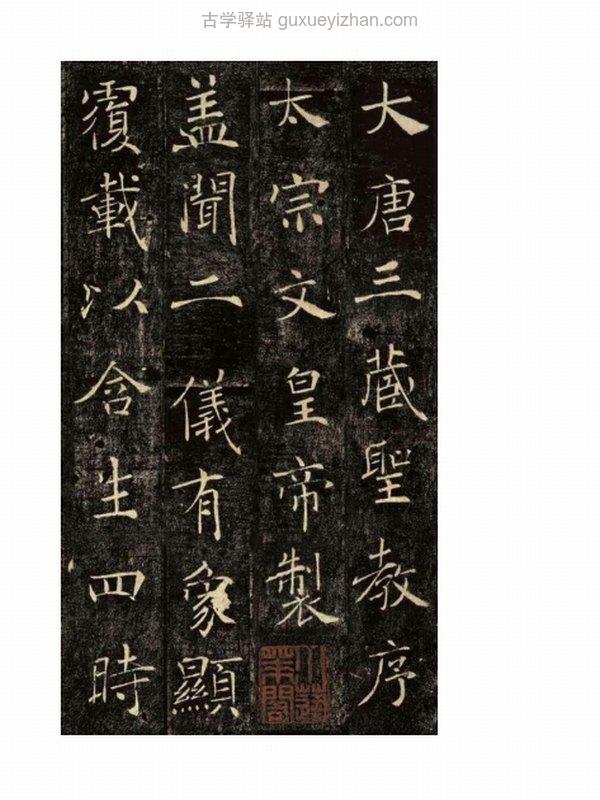 古学驿站 guxueyizhan.com
大唐三藏聖教序
太宗文皇帝製
盖聞二儀有象顯
覆載以含生四時